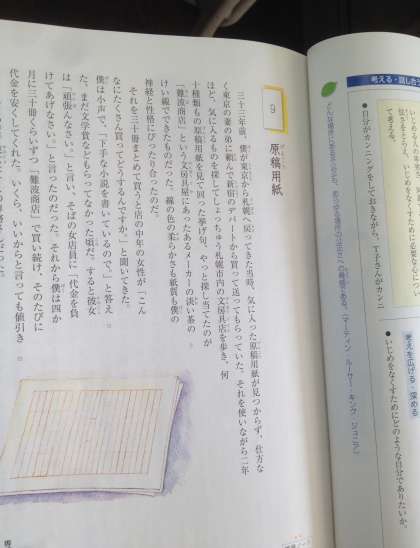 考える・話し合う
自分がカンニングをしておきながら、T子さんがカンニ
て考える。
考えを広げる・深める
いじめをなくすためにどのような自分でありたいか。
9
原稿用紙
げんこう
三十三年前、僕が東京から札幌へ戻ってきた当時、気に入った原稿用紙が見つからず、仕方な
く東京の妻の弟に頼んで新宿のデパートから買って送ってもらっていた。それを使いながら二年
ほど、気に入るものを探してしょっちゅう札幌市内の文房具店を歩き、何
十種類もの原稿用紙を見て回った挙げ句、やっと探し当てたのが
「難波商店」という文房具屋にあったあるメーカーの淡い茶の
けい線でできたものだった。線の色の柔らかさも紙質も僕の
神経と性格にぴったり合ったのだ。
それを三十冊まとめて買うと店の中年の女性が「こん
なにたくさん買ってどうするんですか。」と聞いてきた。
僕は小声で、「下手な小説を書いているので。」と答え
た。まだ文学賞などもらってなかった頃だ。すると彼女
は「頑張んなさい。」と言い、そばの女店員に「代金を負
けてあげなさい。」と言ったのだった。それから僕は四か
月に三十冊くらいずつ「難波商店」で買い続け、そのたびに
代金を安くしてくれた。いくら、いいからと言っても値引き